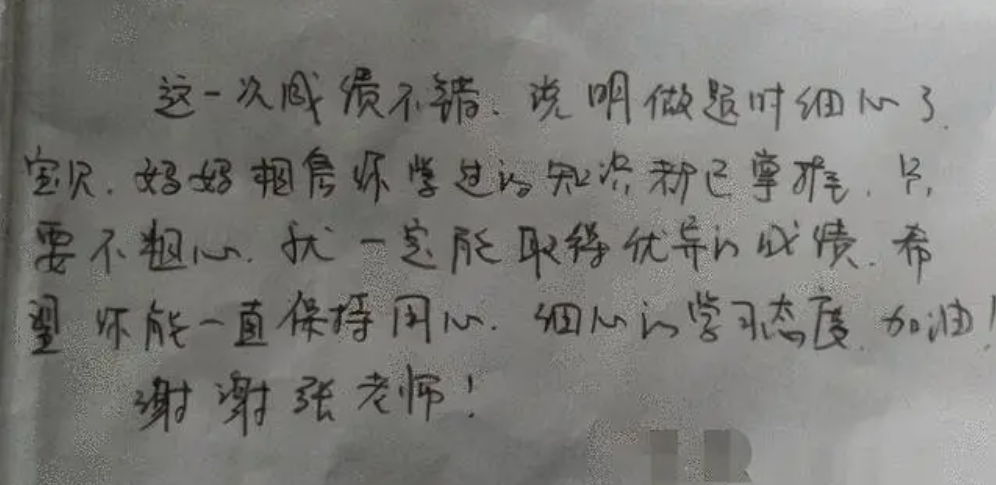 这一次成绩不错、说明做题时细心了.
宝贝、妈妈相信你学过的知识都已掌握、只
要不粗心、就一定能取得优异的成绩、希
望你能一直保持用心、细心的学习态度、加油!
谢谢张老师!